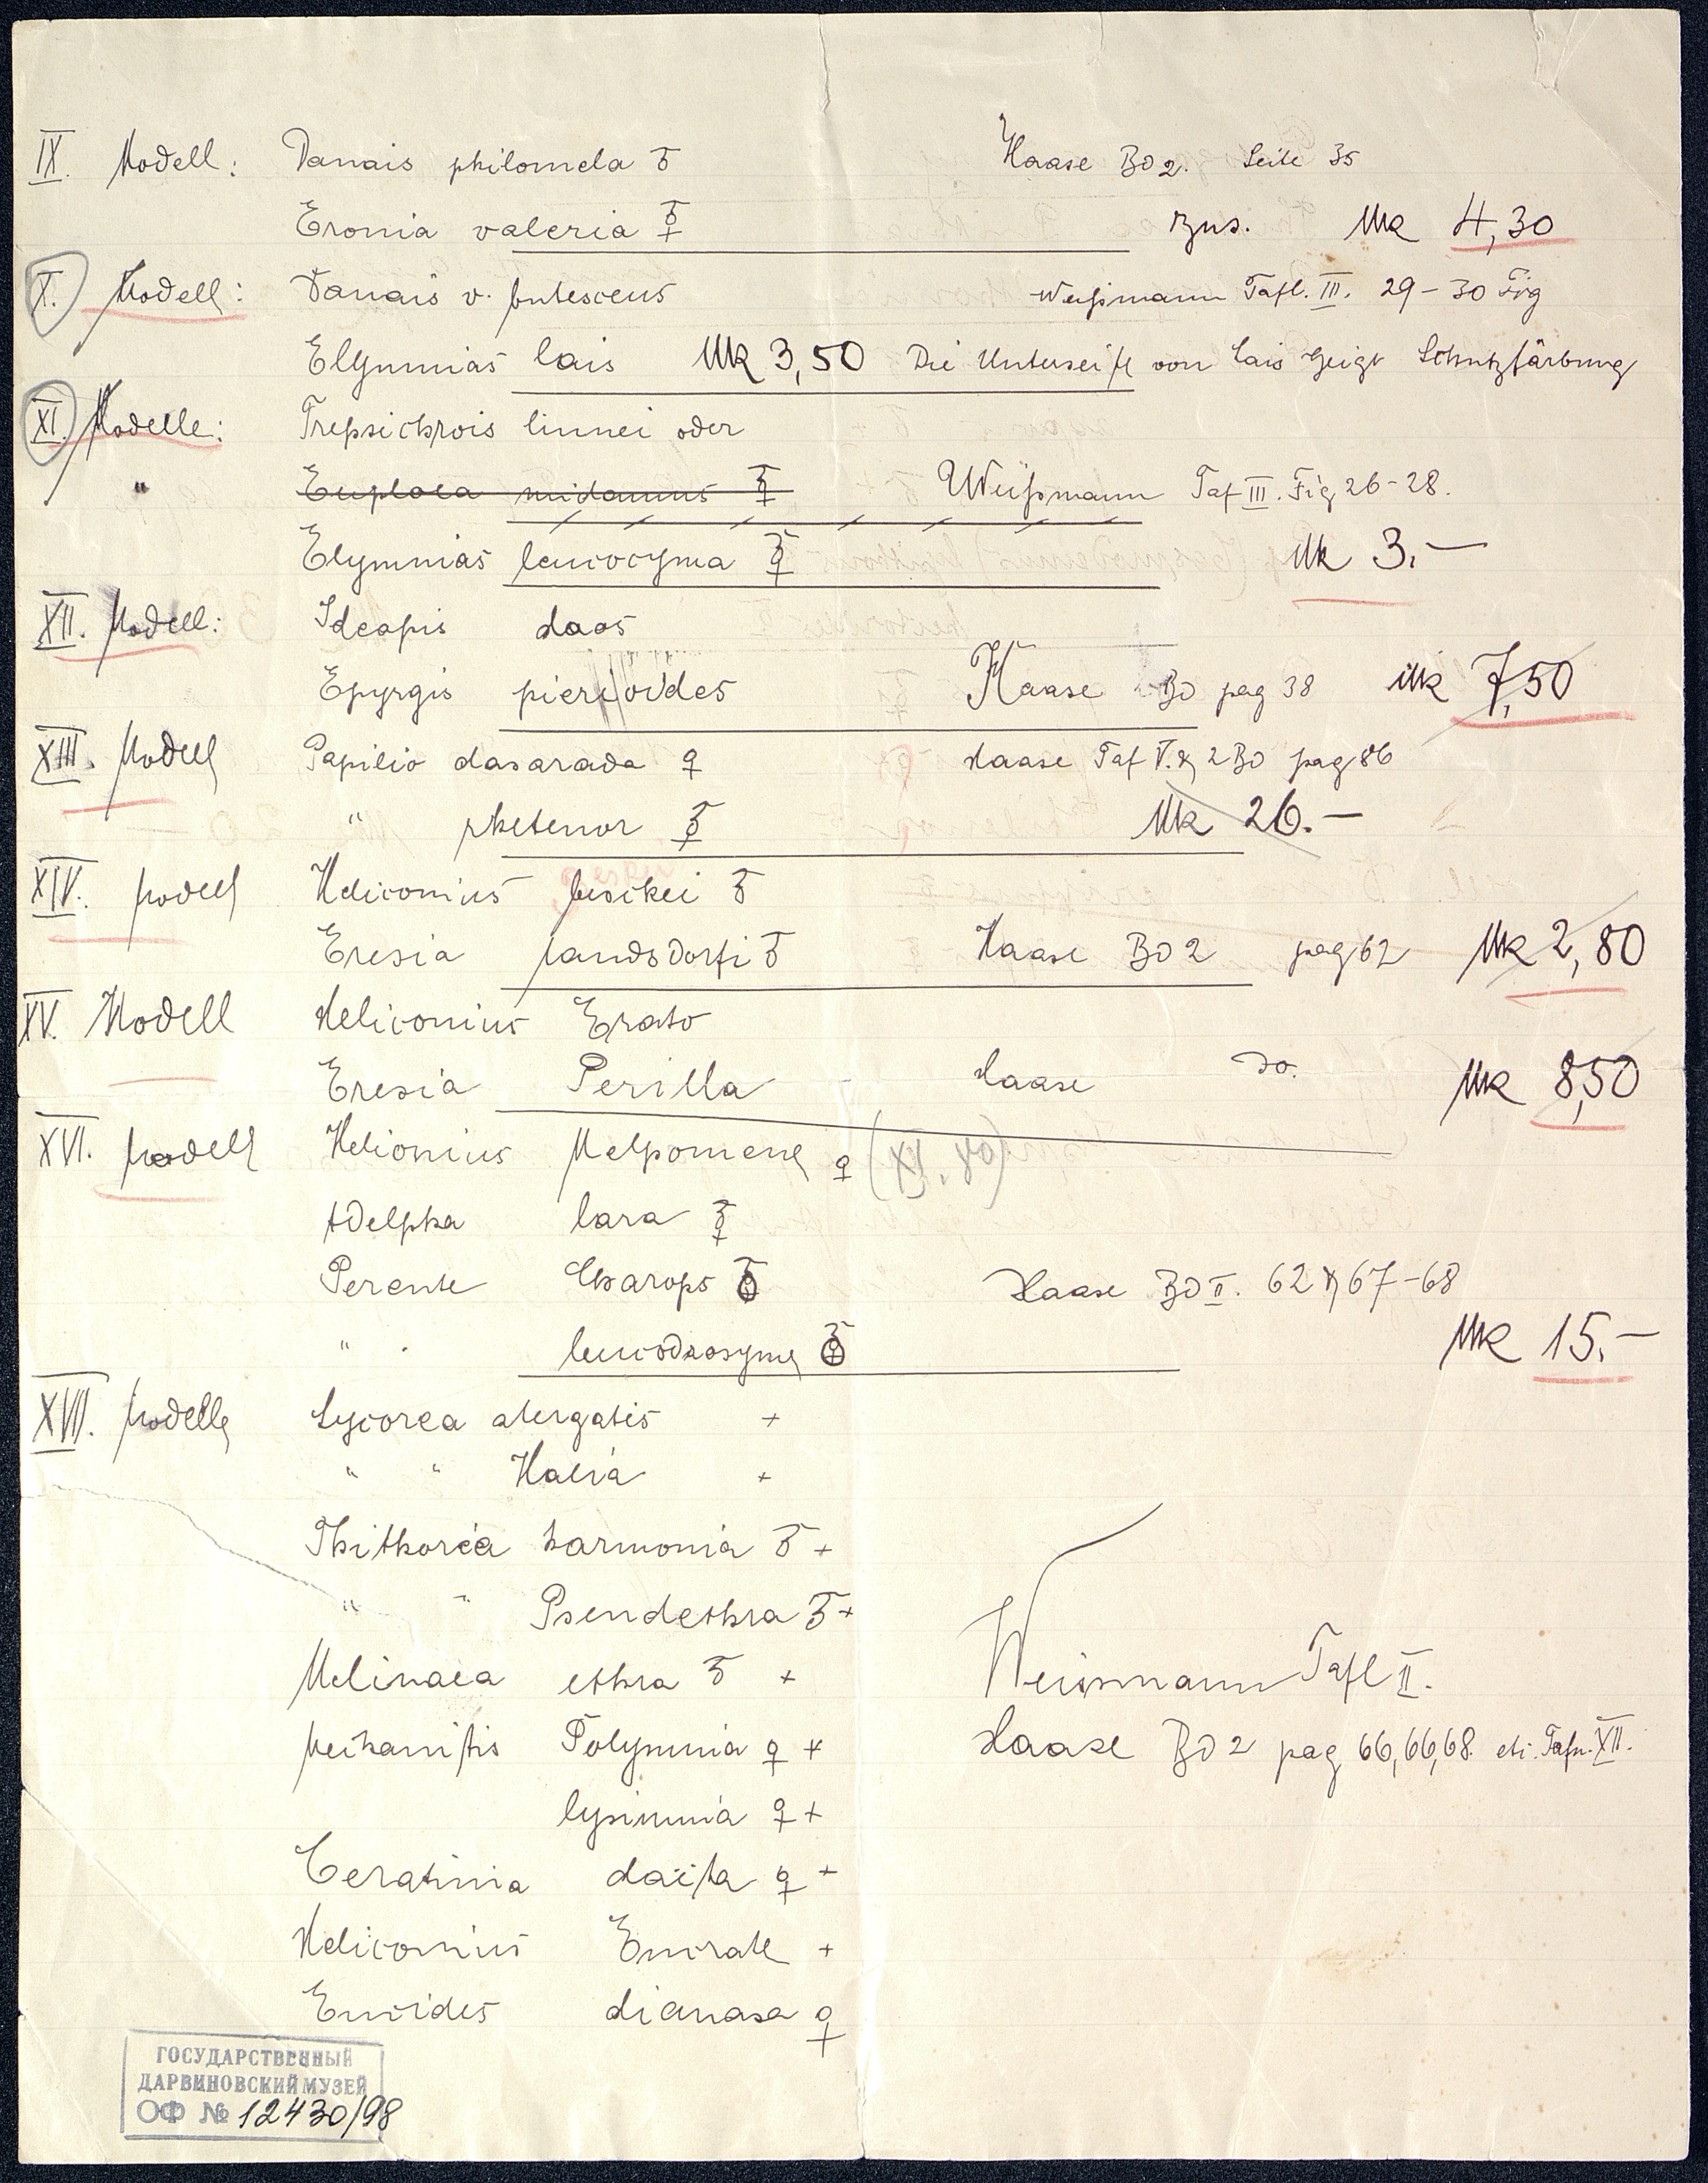 IX. Modell: Danais philomela ♂ Haase Bd 2. Seite 35
Eronia valeria ⚥ zus. Mk 4,30
X. Modell: Danais v. lutescens Weißmann Tafl. III. 29-30 Fig
Elymnias lais Mk 3,50 Die Unterseite von lais zeigt Schutzfärbung
XI. Modelle: Trepsichrois linnei oder
" Euploea midamus ⚥ Weißmann Taf III. Fig 26-28.
Elymnias leucocyma ⚥ Mk 3.—
XII. Modell: Ideopis daos
Epyrgis pierioides Haase Bd pag 38 Mk 7,50
XIII. Modell Papilio dasarada ♀ Haase Taf V. & 2 Bd pag 86
" rhetenor ⚥ Mk 26.—
XIV. Modell Heliconius beskei ♂
Eresia landsdorfi ♂ Haase Bd 2 pag 62 Mk 2,80
XV. Modell Heliconius Erato
Eresia Perilla Haase do. Mk 8,50
XVI. Modell Helionius Melpomene ♀ (XI. 80)
Adelpha lara ⚥
Perente Charops Haase Bd II. 62 & 67-68
" leucodrosyme Mk 15.—
XVII. Modelle Lycorea atergatis +
" " Halia +
Thithorea harmonia ♂ +
" " Pseudethra ♂ +
Melinaea ethra ♂ + Weismann Tafl II.
Mechanitis Polymnia ♀ + Haase Bd 2 pag 66,66,68. etc. Tafn. XII.
lysimnia ♀ +
Ceratinia daëta ♀ +
Heliconius Eucrate +
Eueides dianasa ♀
ГОСУДАРСТВЕННЫЙ
ДАРВИНОВСКИЙ МУЗЕЙ
ОФ № 12430/98